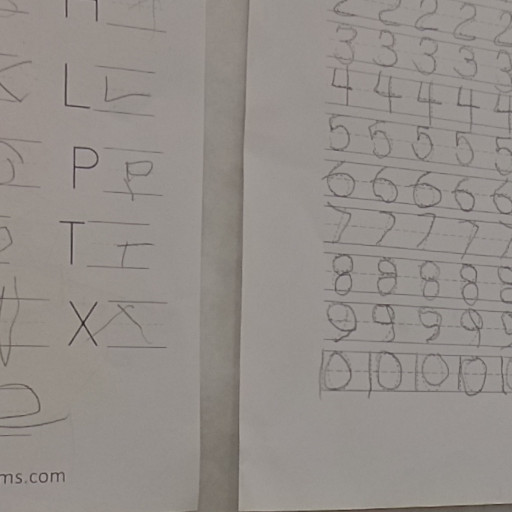 L L
P P
T T
X X
ms.com
2 2 2 2 2
3 3 3 3 3
4 4 4 4 4
5 5 5 5 5
6 6 6 6 6
7 7 7 7 7
8 8 8 8 8
9 9 9 9 9
0 0 0 0